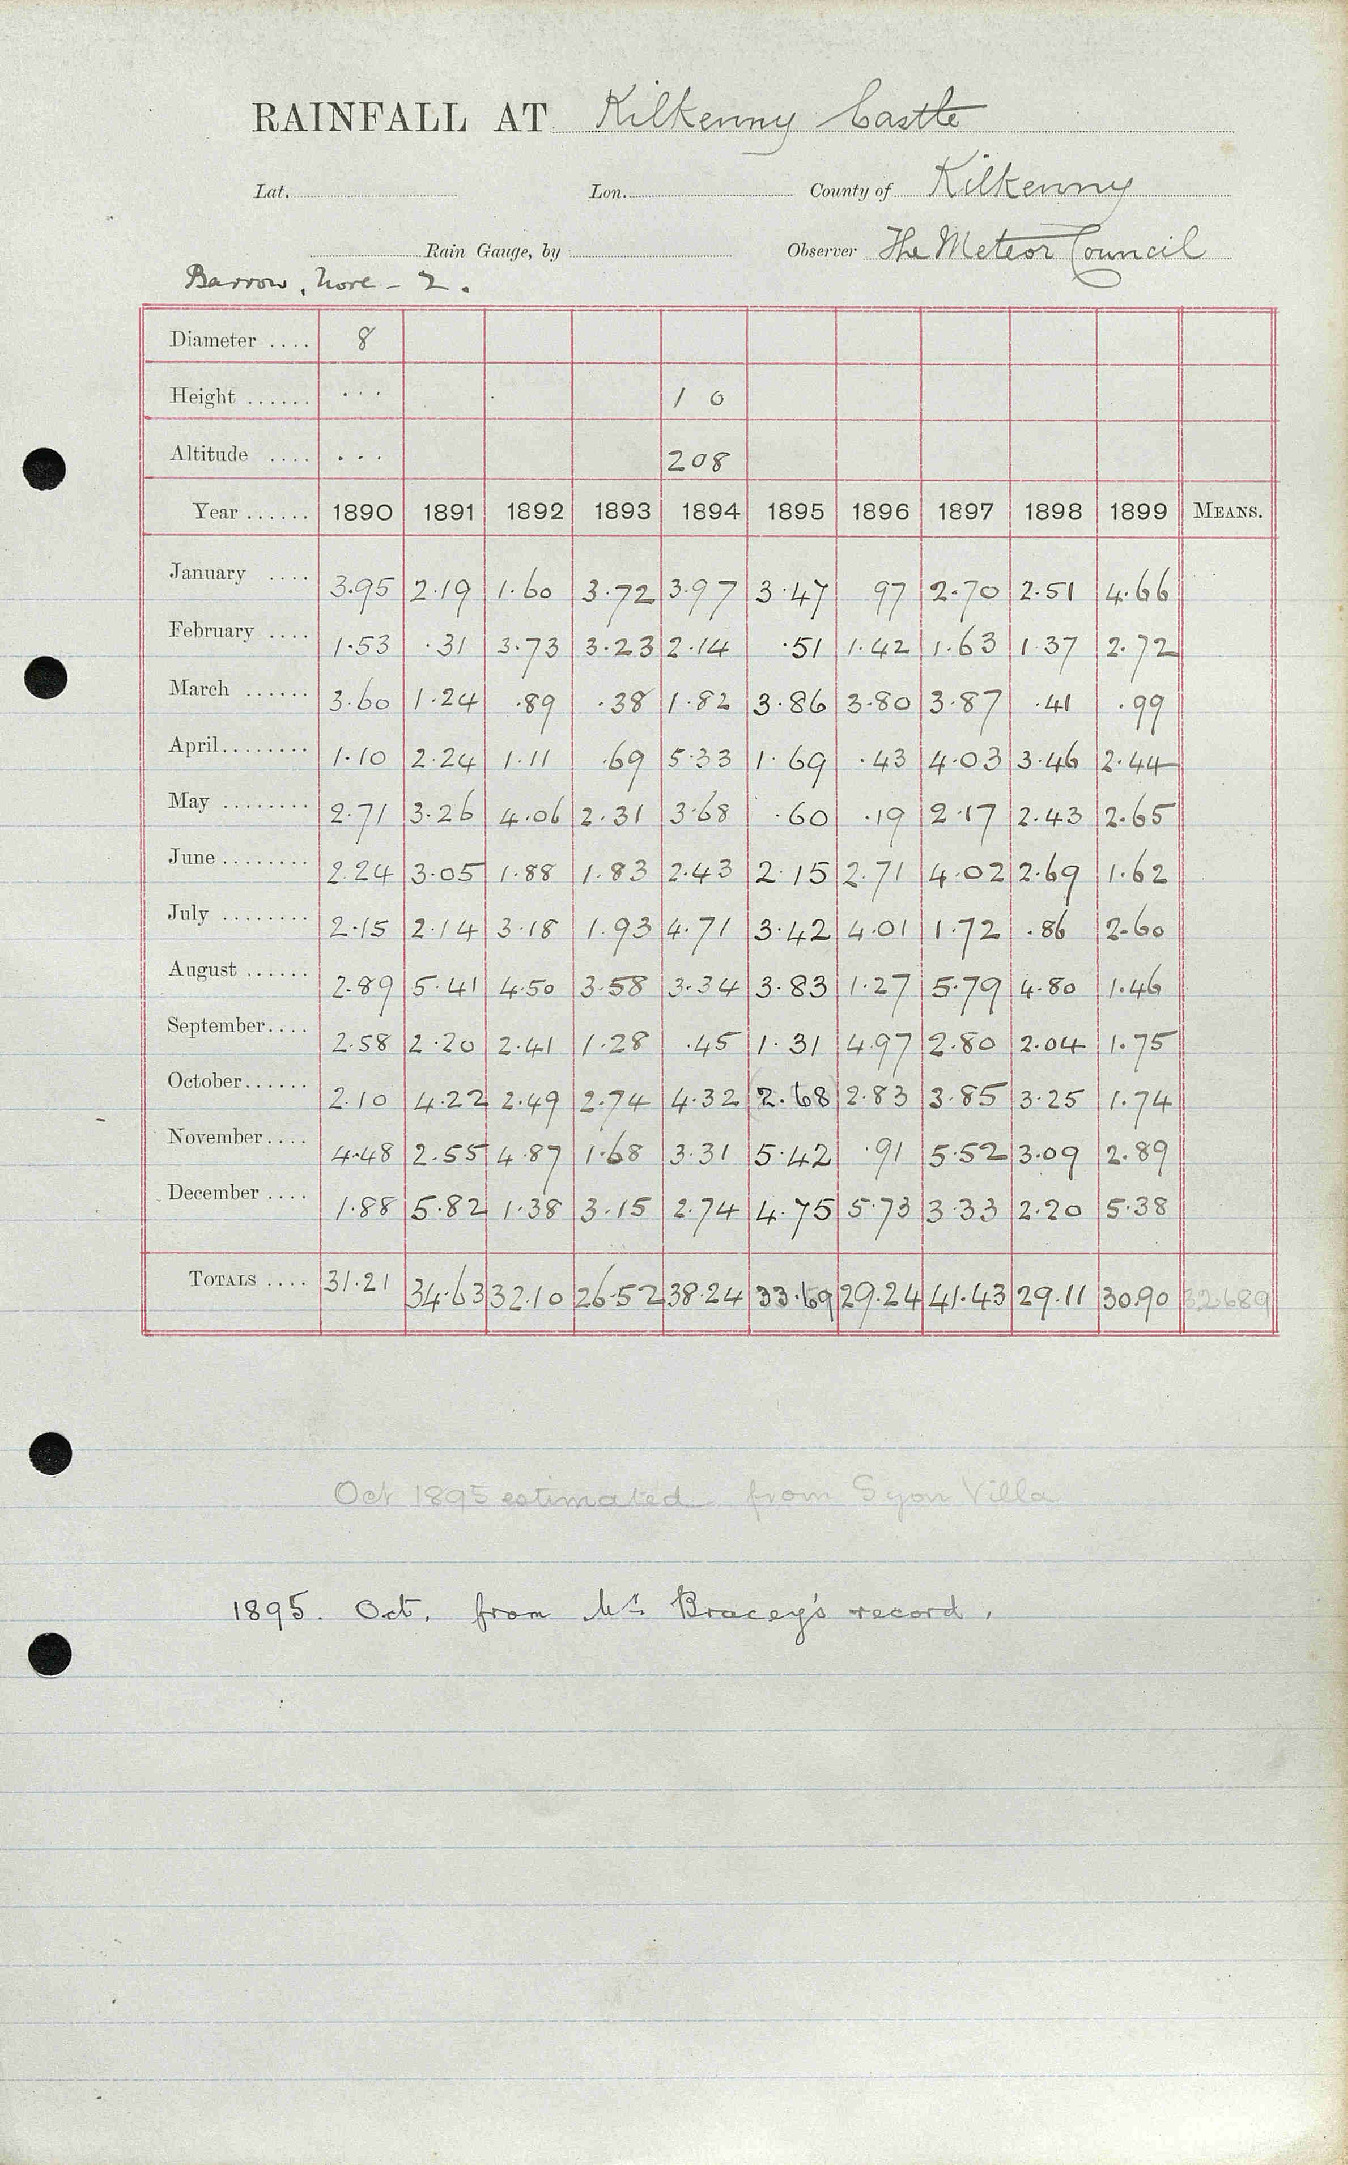 RAINFALL AT Kilkenny Castle
Lat. Lon. County of Kilkenny
Rain Gauge, by Observer The Meteor Council
Barrow, Nore - 2.
Diameter .... 8
Height ...... ... 1 0
Altitude .... ... 208
Year ...... 1890 1891 1892 1893 1894 1895 1896 1897 1898 1899 MEANS.
January .... 3.95 2.19 1.60 3.72 3.97 3.47 97 2.70 2.51 4.66
February .... 1.53 .31 3.73 3.23 2.14 .51 1.42 1.63 1.37 2.72
March ...... 3.60 1.24 .89 .38 1.82 3.86 3.80 3.87 .41 .99
April........ 1.10 2.24 1.11 .69 5.33 1.69 .43 4.03 3.46 2.44
May ........ 2.71 3.26 4.06 2.31 3.68 .60 .19 2.17 2.43 2.65
June ........ 2.24 3.05 1.88 1.83 2.43 2.15 2.71 4.02 2.69 1.62
July ........ 2.15 2.14 3.18 1.93 4.71 3.42 4.01 1.72 .86 2.60
August ...... 2.89 5.41 4.50 3.58 3.34 3.83 1.27 5.79 4.80 1.46
September.... 2.58 2.20 2.41 1.28 .45 1.31 4.97 2.80 2.04 1.75
October...... 2.10 4.22 2.49 2.74 4.32 (2.68) 2.83 3.85 3.25 1.74
November.... 4.48 2.55 4.87 1.68 3.31 5.42 .91 5.52 3.09 2.89
December .... 1.88 5.82 1.38 3.15 2.74 4.75 5.73 3.33 2.20 5.38
TOTALS .... 31.21 34.63 32.10 26.52 38.24 33.69 29.24 41.43 29.11 30.90 32.689
Oct 1895 estimated from Syon Villa
1895. Oct. from Mr Bracey's record.